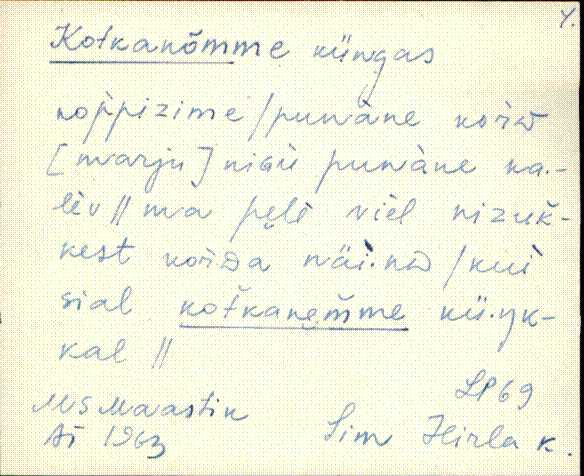 4.
Kotkanõmme küngas
noṕpizime / punàne kořiɒ
[marju] niɢù punàne ka.-
lèv // ma pęlè vièl nizuḱ-
kest kořiɒa näi.nɒ / kui
sial koťkanęm̆me kü.ŋk-
kal //
LP69
MS Maastik
AÌ 1963
Sim Hirla k.